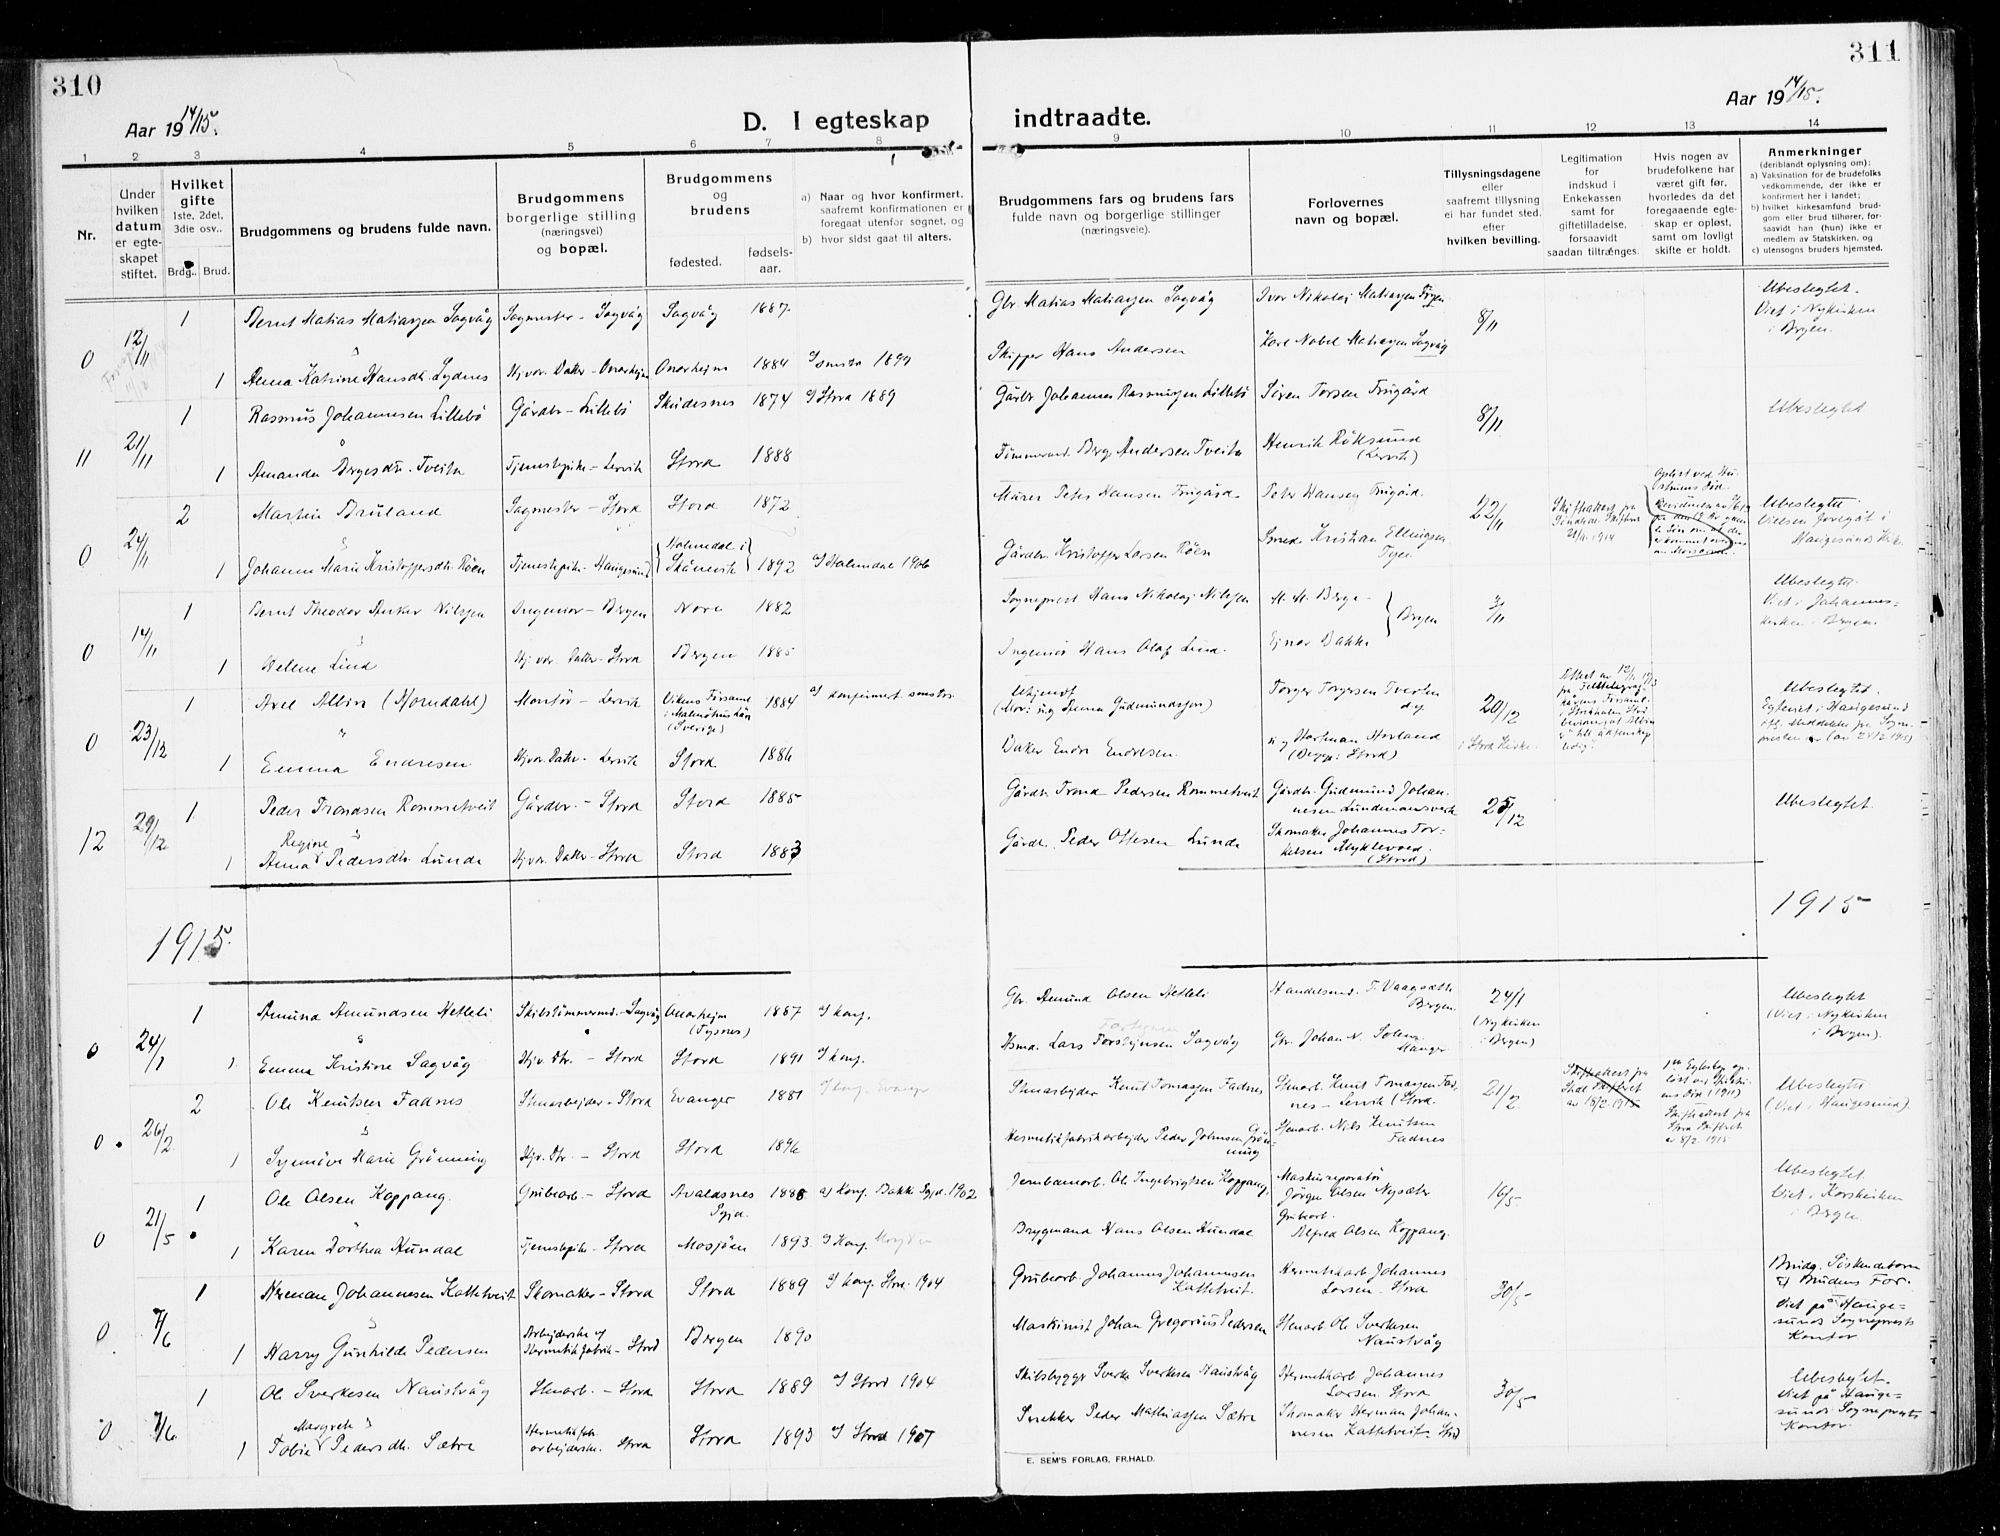 310
311
Aar 1914/15.
D. I egteskap
indtraadte.
Aar 1914/15.
1 2 3 4 5 6 7 8 9 10 11 12 13 14
Nr.
Under hvilken datum er egteskapet stiftet.
Hvilket gifte 1ste, 2det, 3die osv..
Brdg.. Brud.
Brudgommens og brudens fulde navn.
Brudgommens borgerlige stilling (næringsvei) og bopæl.
Brudgommens og brudens
fødested. fødsels-aar.
a) Naar og hvor konfirmert, saafremt konfirmationen er foregaat utenfor sognet, og
b) hvor sidst gaat til alters.
Brudgommens fars og brudens fars fulde navn og borgerlige stillinger (næringsveie).
Forlovernes navn og bopæl.
Tillysningsdagene eller saafremt tillysning ei har fundet sted. efter hvilken bevilling.
Legitimation for indskud i Enkekassen samt for giftetilladelse, forsaavidt saadan tiltrænges.
Hvis nogen av brudefolkene har været gift før, hvorledes da det foregaaende egteskap er opløst, samt om lovligt skifte er holdt.
Anmerkninger (deriblandt oplysning om):
a) Vaksination for de brudefolks vedkommende, der ikke er konfirmert her i landet;
b) hvilket kirkesamfund brudgom eller brud tilhører, forsaavidt han (hun) ikke er medlem av Statskirken, og
c) utensogns bruders hjemsted.
0 12/11 1 Bernt Matias Matiasen Sagvåg Sagmester – Sagvåg Sagvåg 1887. Gbr. Matias Matiasen Sagvåg Ivar Nikolaj Matiasen 8/11 Ubeslegtet. Viet i Nykirken i Bergen.
1 Anna Katrine Hansdr. Lydnes Hj. vor. Datter – Onarheim Onarheim 1884 Skipper Hans Andersen Karl Nobel Matiasen Sagvåg
11 21/11 1 Rasmus Johannesen Lillebö Gårdbr – Lillebö Skudesnes 1874 Stord 1889 Gårbr. Johannes Rasmusen Lillebö Sören Torsen Frugård 8/11 Ubeslegtet
1 Amanda Bergesdtr. Tveita Tjenestepike – Lervik Stord 1888 Tömmermd. Berge Andersen Tveita Henrik Röksund (Lervik)
0 24/11 2 Martin Bruland Sagmester – Stord Stord 1872 Murer Peter Hansen Frugård Peter Hansen Frugård 22/11 Ubeslegtet
1 Johanne Marie Kristoffersdtr. Röen Tjenestepike – Haugesund Holmedal i Skånevik 1892 Holmedal 1906 Gårdbr. Kristoffer Larsen Röen Smed Kristian Ellingsen
0 14/11 1 Bernt Theodor Anker Nilssen Ingeniør – Bergen Nore 1882 Sogneprest Hans Nikolaj Nilssen M. M. Berge 3/11 Ubeslegtet. Viet i Johanneskirken i Bergen.
1 Helene Lund Hj. vor. Datter – Stord Bergen 1885 Ingeniør Hans Olaf Lund. Ejnar Dakke Bergen
0 23/12 1 Axel Albin (Horndahl) Montör – Lervik Vikens Forsaml. i Malmöhus Län (Sverige) 1884 Ukjendt (Mor: ug. Penna Gudmundsson) Torger Torgersen Tveiten 20/12 i Stord Kirke. Ubeslegtet.
1 Emma Endresen Hj. vor. Datr. – Lervik Stord 1886 Baker Endre Endresen Hartman Horland (Begge: Stord)
12 29/12 1 Peder Trondsen Rommetveit Gårdbr. – Stord Stord 1885 Gårdbr. Trond Pedersen Rommetveit Gårdb. Gudmund Johannesen Lundemansverk 25/12 Ubeslegtet.
1 Anna Regine Pedersdtr. Lunde Hj. vor. Datter – Stord Stord 1883 Gårdb. Peder Ottesen Lunde Skomaker Johannes Torkelsen Myklevoed. (Stord)
1915.
1915
0 24/1 1 Amund Amundsen Hetleli Skibstömmermd. – Sagvåg Onarheim (Tysnes) 1887 Konf. Gbr. Amund Olsen Hetleli Handelsmd. T. Vaagsæth Bergen 24/1 (Nykirken i Bergen) Ubeslegtet (Viet i Nykirken i Bergen).
1 Emma Kristine Sagvåg Hjv. Dtr. – Stord Stord 1891 Konf. Hsmd. Lars Torstejnsen Sagvåg Gbr. Johan N. Solem Manger
0 26/2 2 Ole Knutsen Fadnes Stenarbejder – Stord Evanger 1881 Konf. Evanger Stenarbejder Knut Tomassen Fadnes Stenarb. Knut Tomassen Fadnes – Lervik (Stord. 21/2 Skifteattest fra Stord Skifteret av 18/2 1915 1ste Egteskap opløst ved Hustruens Död (1911) Skifteattest fra Stord Skifteret av 8/2 1915 Ubeslegtet (Viet i Haugesund).
1 Synnöve Marie Grönning Hjv. Dtr. – Stord Stord 1896 Hermetikfabrikarbejder Peder Johnsen Grönning Stenarb. Nils Knutsen Fadnes
0 21/5 1 Ole Olsen Koppang. Grubearb. – Stord Avaldsnes Pgjd. 1888 a) Konf. Bakke Pgjd. 1902 Jernbanearb. Ole Ingebrigtsen Koppang, Maskinreparatør Jörgen Olsen Nysæter 16/5 Ubeslegtet. Viet i Korskirken i Bergen
1 Karen Dorthea Hundal Tjenestepike – Stord Mosjöen 1893 Konf. Brygmand Hans Olsen Hundal Grubearb. Alfred Olsen Koppang.
0 7/6 1 Herman Johannesen Kattetveit Skomaker – Stord Stord 1889 Konf. Stord 1904 Grubearb. Johannes Johannesen Kattetveit. Hermetikarb. Johannes Larsen. Stord 30/5 Brudg. Söskendebarn af Brudens Far. Viet på Haugesunds Sogneprests Kontor
1 Harry Gunhilde Pedersen Arbejderske på Hermetikfabrik – Stord Bergen 1890 Maskinist Johan Gregorius Pedersen Stenarb. Ole Sverkesen Naustvåg
0 7/6 1 Ole Sverkesen Naustvåg Stenarb. – Stord Stord 1889 Stord 1904 Skibsbygger Sverke Sverkesen Naustvåg Hermetikarb. Johannes Larsen. Stord 30/5 Ubeslegtet. Viet på Haugesunds Sogneprests Kontor
1 Tobie Margrete Pedersdtr. Sætre Hermetikfabr. arbejderske. Stord Stord 1893 Stord 1907 Snekker Peder Mathiassen Sætre Skomaker Herman Johannesen Kattetveit – Stord
E. SEM'S FORLAG, FR.HALD.